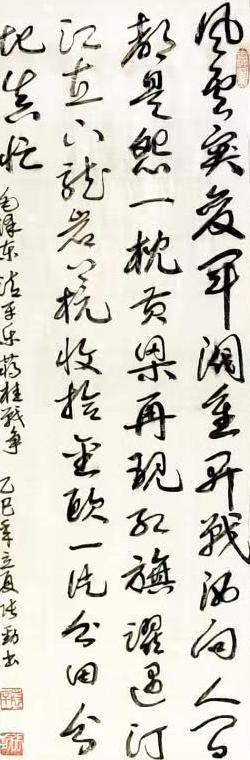 风云突变军阀重开战洒向人间
都是怨一枕黄粱再现红旗躍过汀
江直下龙岩上杭收拾金瓯一片分田分
地真忙 毛泽东清平乐蒋桂战争 乙巳年立夏张勁书